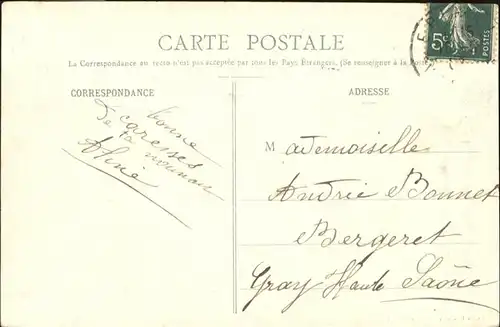 CARTE POSTALE
La Correspondance au recto n'est pas acceptée par tous les Pays Étrangers. (Se renseigner à la Poste)
CORRESPONDANCE
ADRESSE
bonne
De caresses
ta nounou
Aline
Mademoiselle
Andrée Bonnet
Bergeret
Gray Haute Saône
5c
POSTES